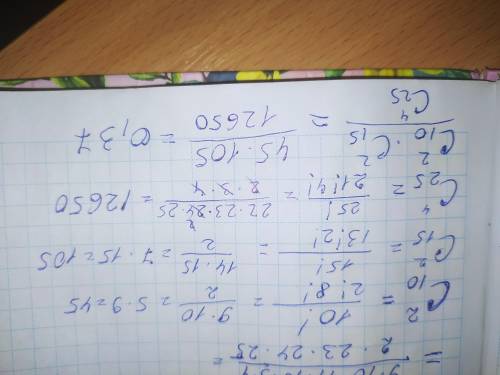 = / 2·23·24·25 =
C₁₀² = 10! / 2!8! = 9·10 / 2 = 5·9=45
C₁₅² = 15! / 13!2! = 14·15 / 2 = 7·15=105
C₂₅⁴ = 25! / 21!4! = 22·23·24·25 / 2·3·4 = 12650
C₁₀² · C₁₅² / C₂₅⁴ = 45·105 / 12650 = 0,37